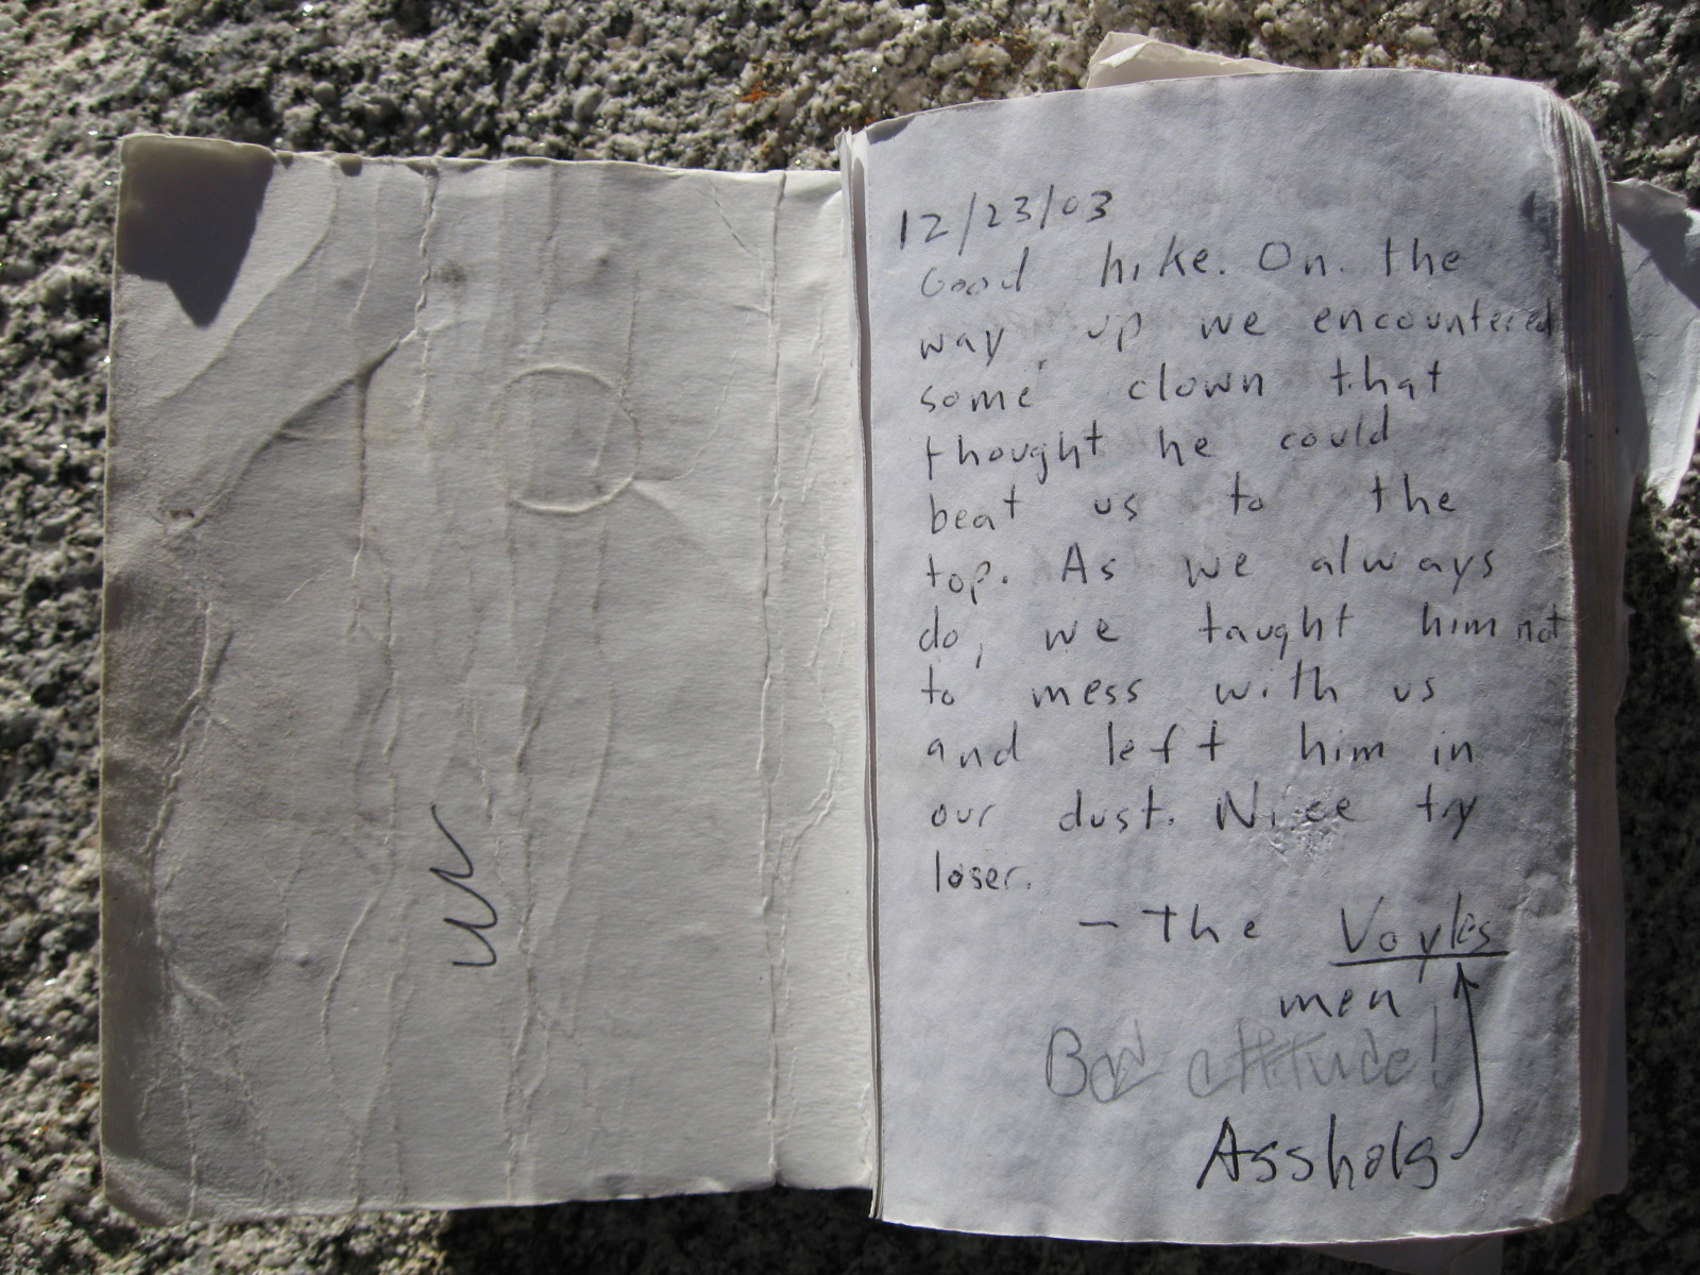 12/23/03
Good hike. On the
way up we encountered
some clown that
thought he could
beat us to the
top. As we always
do, we taught him not
to mess with us
and left him in
our dust. Nice try
loser.
- The Voyles
men
Bad attitude!
Assholes